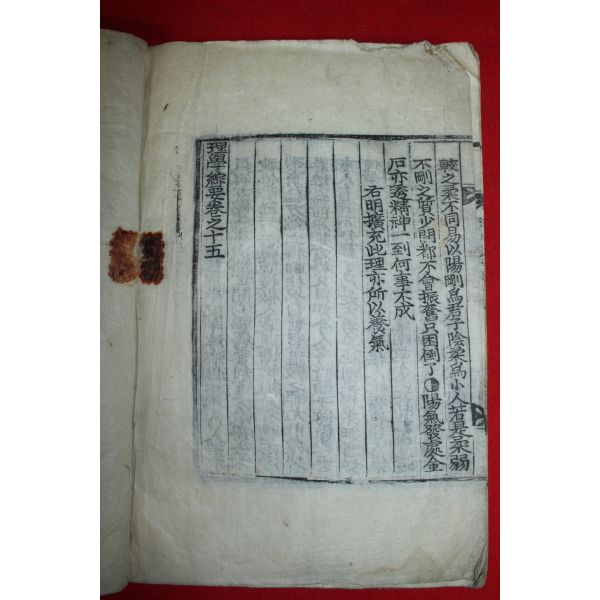 較之柔不同易以陽剛爲君子陰柔爲小人若是柔弱
不剛之質少間都不會振奮只困倒了◑陽氣發處金
石亦透精神一到何事不成
右明擴充此理亦所以養氣
理學綜要卷之十五